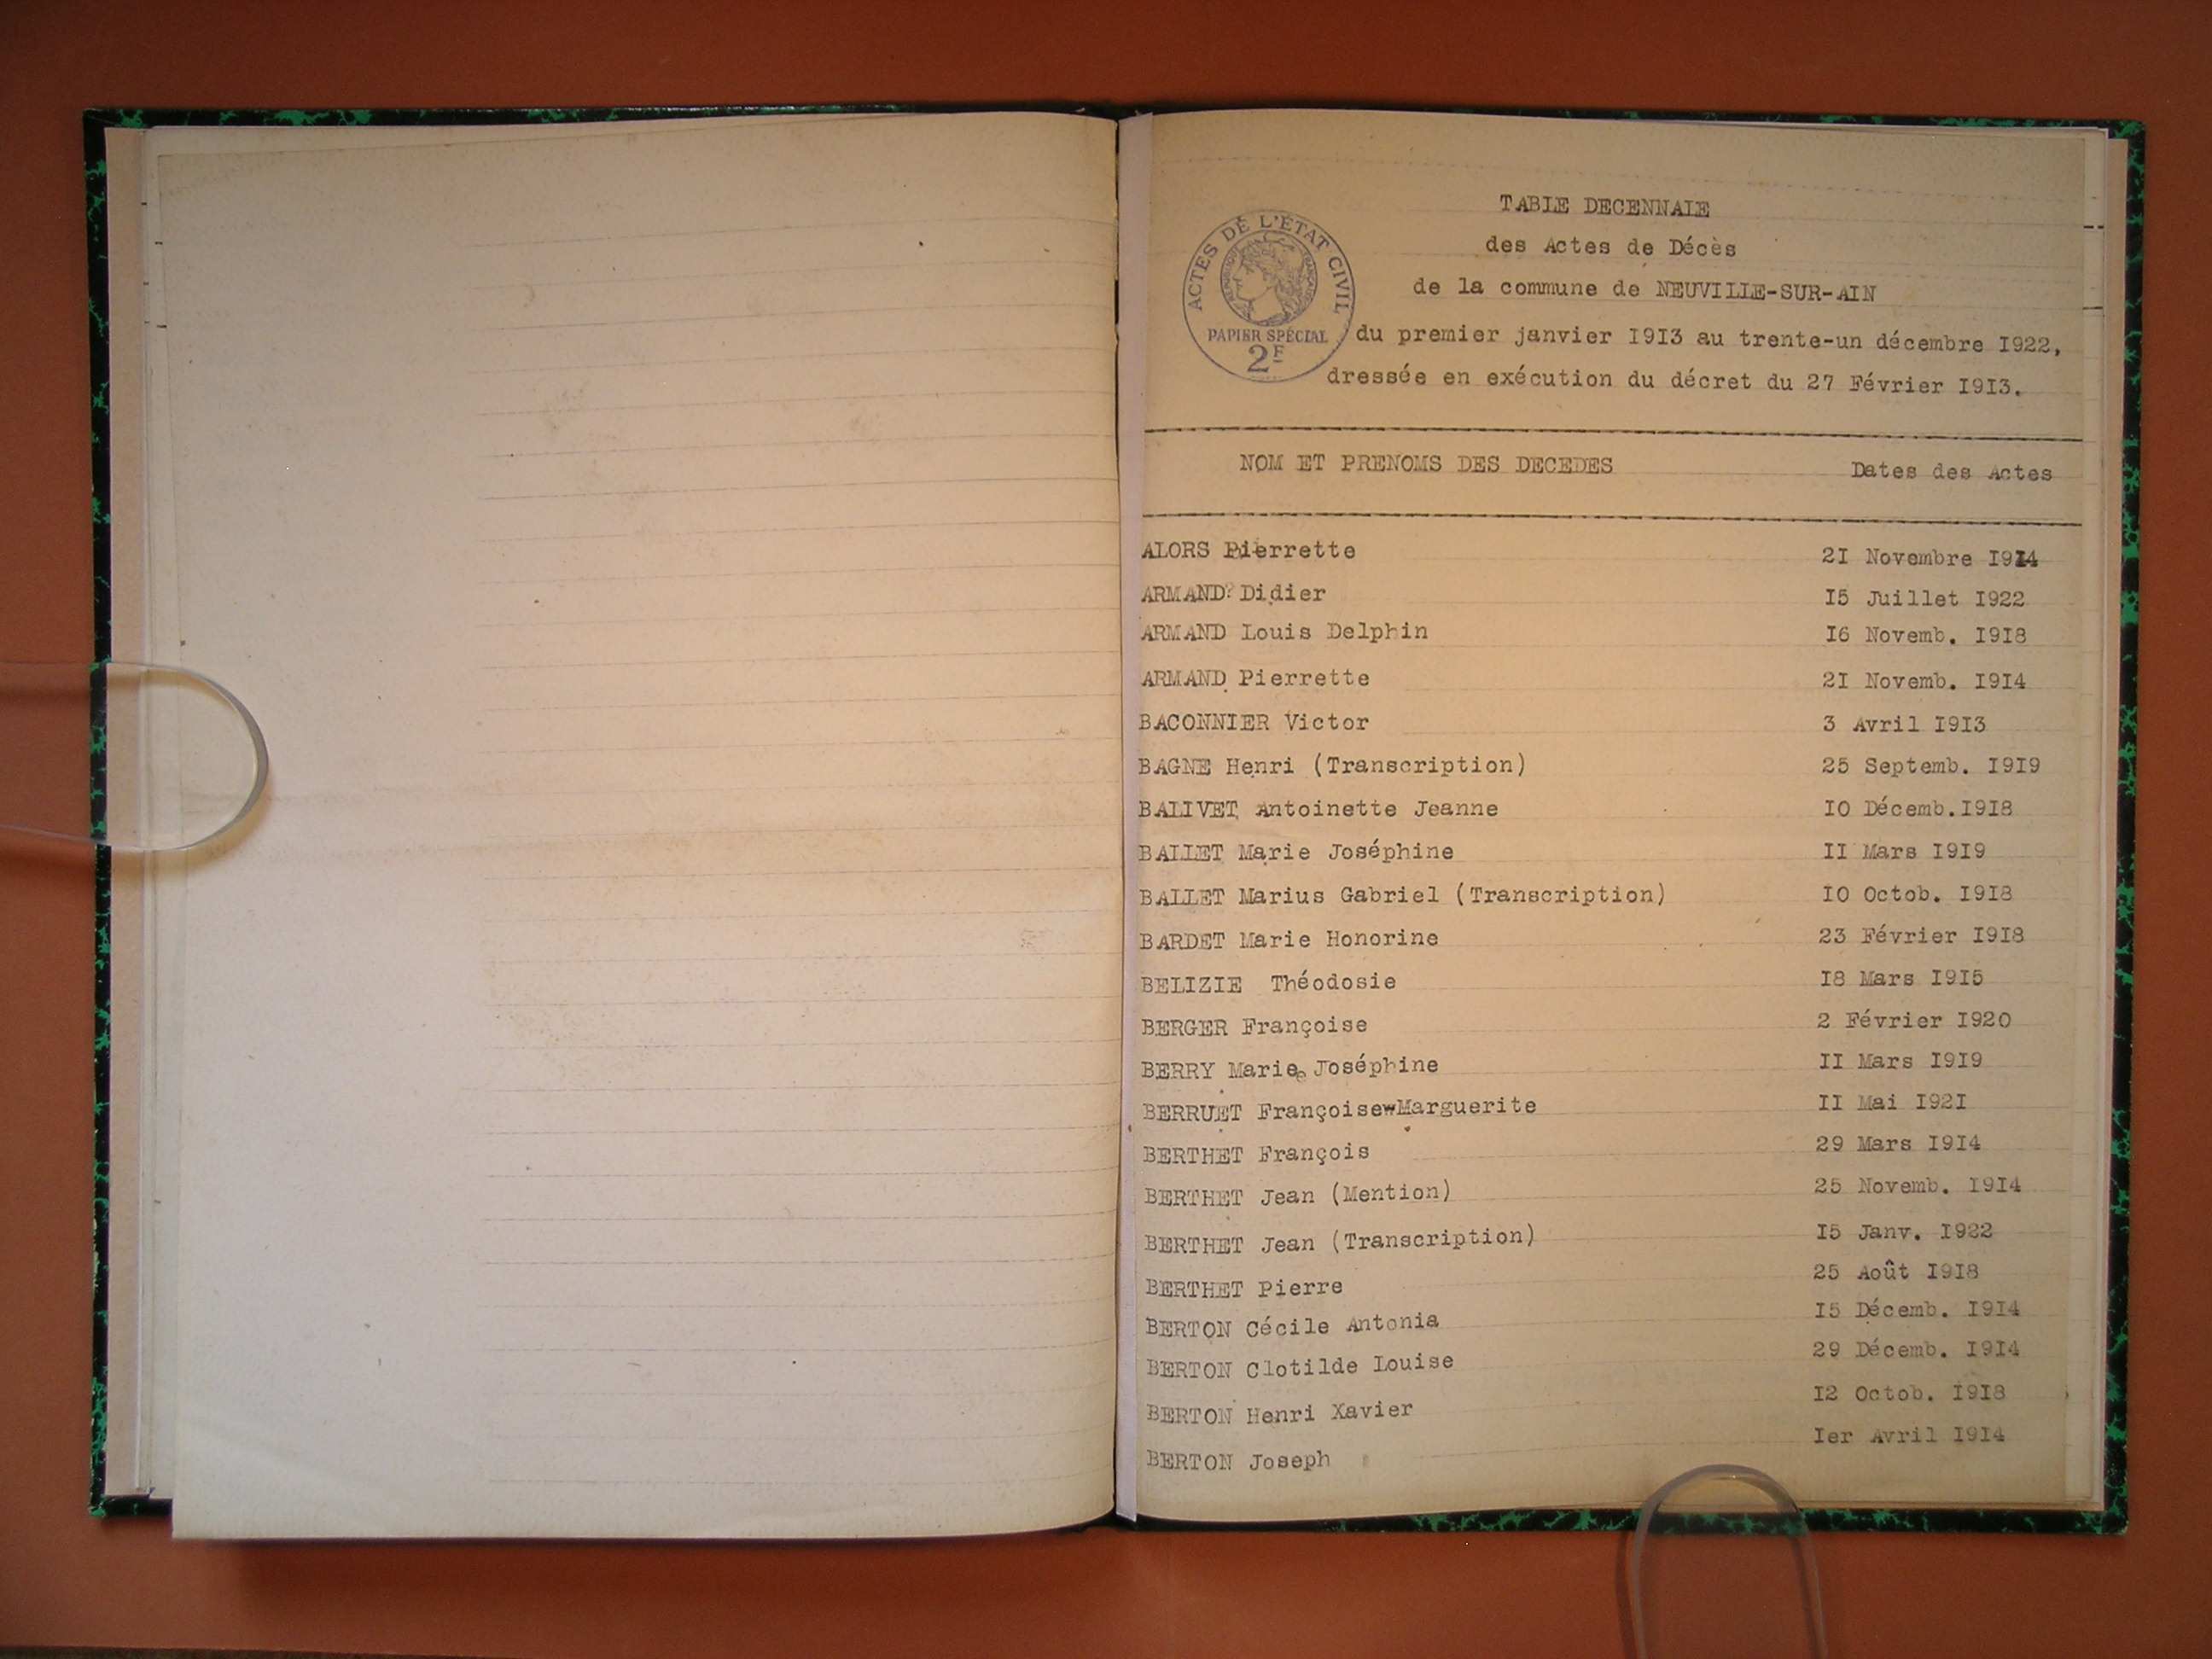 TABLE DECENNALE
des Actes de Décès
de la commune de NEUVILLE-SUR-AIN
du premier janvier I9I3 au trente-un décembre I922,
dressée en exécution du décret du 27 Février I9I3.
ACTES DE L'ÉTAT CIVIL
RÉPUBLIQUE FRANÇAISE
PAPIER SPÉCIAL
2F
NOM ET PRENOMS DES DECEDES Dates des Actes
ALORS Pierrette 2I Novembre I9I4
ARMAND Didier I5 Juillet I922
ARMAND Louis Delphin I6 Novemb. I9I8
ARMAND Pierrette 2I Novemb. I9I4
BACONNIER Victor 3 Avril I9I3
BAGNE Henri (Transcription) 25 Septemb. I9I9
BALIVET Antoinette Jeanne I0 Décemb.I9I8
BALLET Marie Joséphine II Mars I9I9
BALLET Marius Gabriel (Transcription) I0 Octob. I9I8
BARDET Marie Honorine 23 Février I9I8
BELIZIE Théodosie I8 Mars I9I5
BERGER Françoise 2 Février I920
BERRY Marie Joséphine II Mars I9I9
BERRUET Françoise Marguerite II Mai I92I
BERTHET François 29 Mars I9I4
BERTHET Jean (Mention) 25 Novemb. I9I4
BERTHET Jean (Transcription) I5 Janv. I922
BERTHET Pierre 25 Août I9I8
BERTON Cécile Antonia I5 Décemb. I9I4
BERTON Clotilde Louise 29 Décemb. I9I4
BERTON Henri Xavier I2 Octob. I9I8
BERTON Joseph Ier Avril I9I4